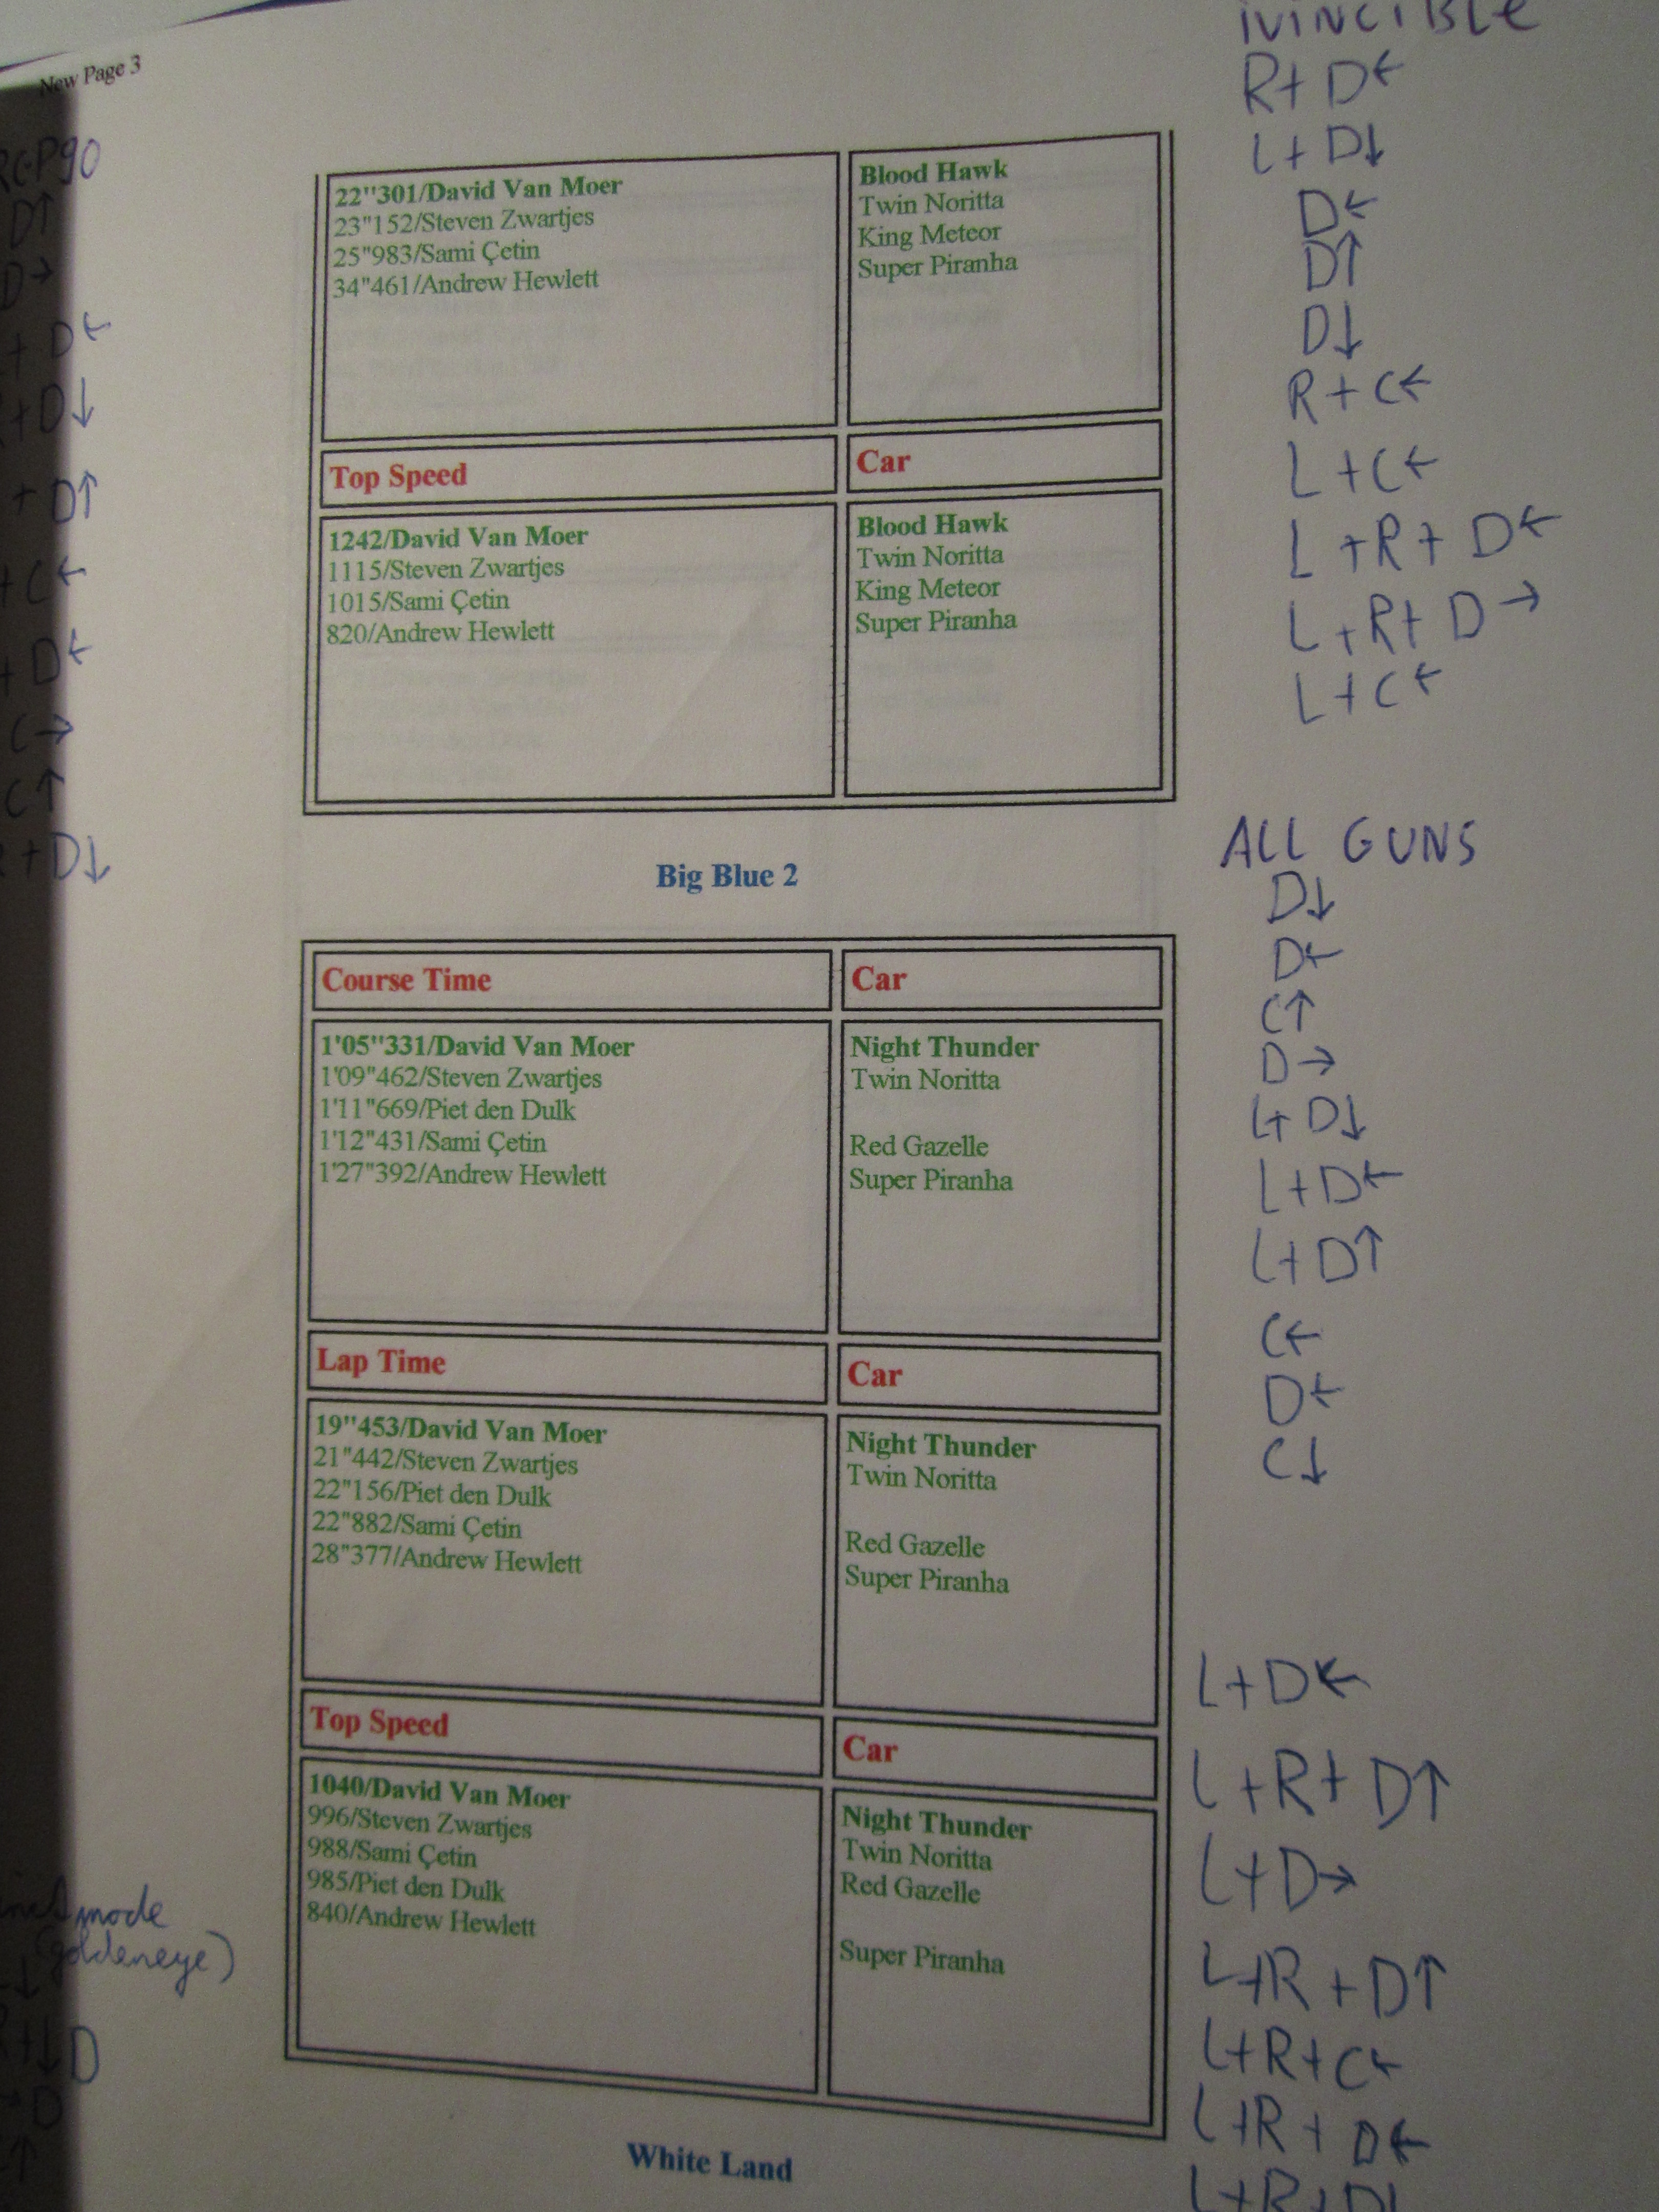 New Page 3
22"301/David Van Moer
23"152/Steven Zwartjes
25"983/Sami Çetin
34"461/Andrew Hewlett
Blood Hawk
Twin Noritta
King Meteor
Super Piranha
Top Speed
Car
1242/David Van Moer
1115/Steven Zwartjes
1015/Sami Çetin
820/Andrew Hewlett
Blood Hawk
Twin Noritta
King Meteor
Super Piranha
Big Blue 2
Course Time
Car
1'05"331/David Van Moer
1'09"462/Steven Zwartjes
1'11"669/Piet den Dulk
1'12"431/Sami Çetin
1'27"392/Andrew Hewlett
Night Thunder
Twin Noritta
Red Gazelle
Super Piranha
Lap Time
Car
19"453/David Van Moer
21"442/Steven Zwartjes
22"156/Piet den Dulk
22"882/Sami Çetin
28"377/Andrew Hewlett
Night Thunder
Twin Noritta
Red Gazelle
Super Piranha
Top Speed
Car
1040/David Van Moer
996/Steven Zwartjes
988/Sami Çetin
985/Piet den Dulk
840/Andrew Hewlett
Night Thunder
Twin Noritta
Red Gazelle
Super Piranha
White Land
RC-P90
D↑
D→
+ D←
+D↓
+ D↑
+ C←
+ D←
C→
C↑
+D↓
mode
(goldeneye)
↓
+↓D
D
↑
INVINCIBLE
R+ D←
L+ D↓
D←
D↑
D↓
R+C←
L+C←
L+R+ D←
L+R+ D→
L+C←
ALL GUNS
D↓
D←
C↑
D→
L+ D↓
L+D←
L+D↑
C←
D←
C↓
L+D←
L+R+ D↑
L+D→
L+R+D↑
L+R+C←
L+R+ D←
L+R+D↓